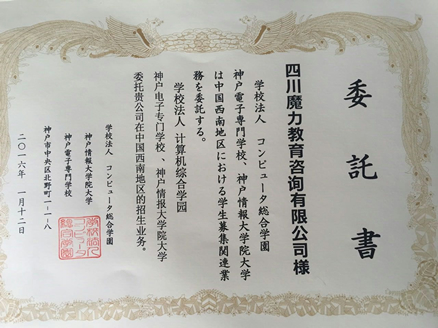 委託書
四川魔力教育咨询有限公司様
学校法人 コンピュータ総合学園
神戸電子専門学校、神戸情報大学院大学
は中国西南地区における学生募集関連業
務を委託する。
学校法人 计算机综合学园
神户电子专门学校、神户情报大学院大学
委托贵公司在中国西南地区的招生业务。
学校法人 コンピュータ総合学園
神戸情報大学院大学
神戸電子専門学校
神戸市中央区北野町一-一-八
二〇一六年 一月十二日